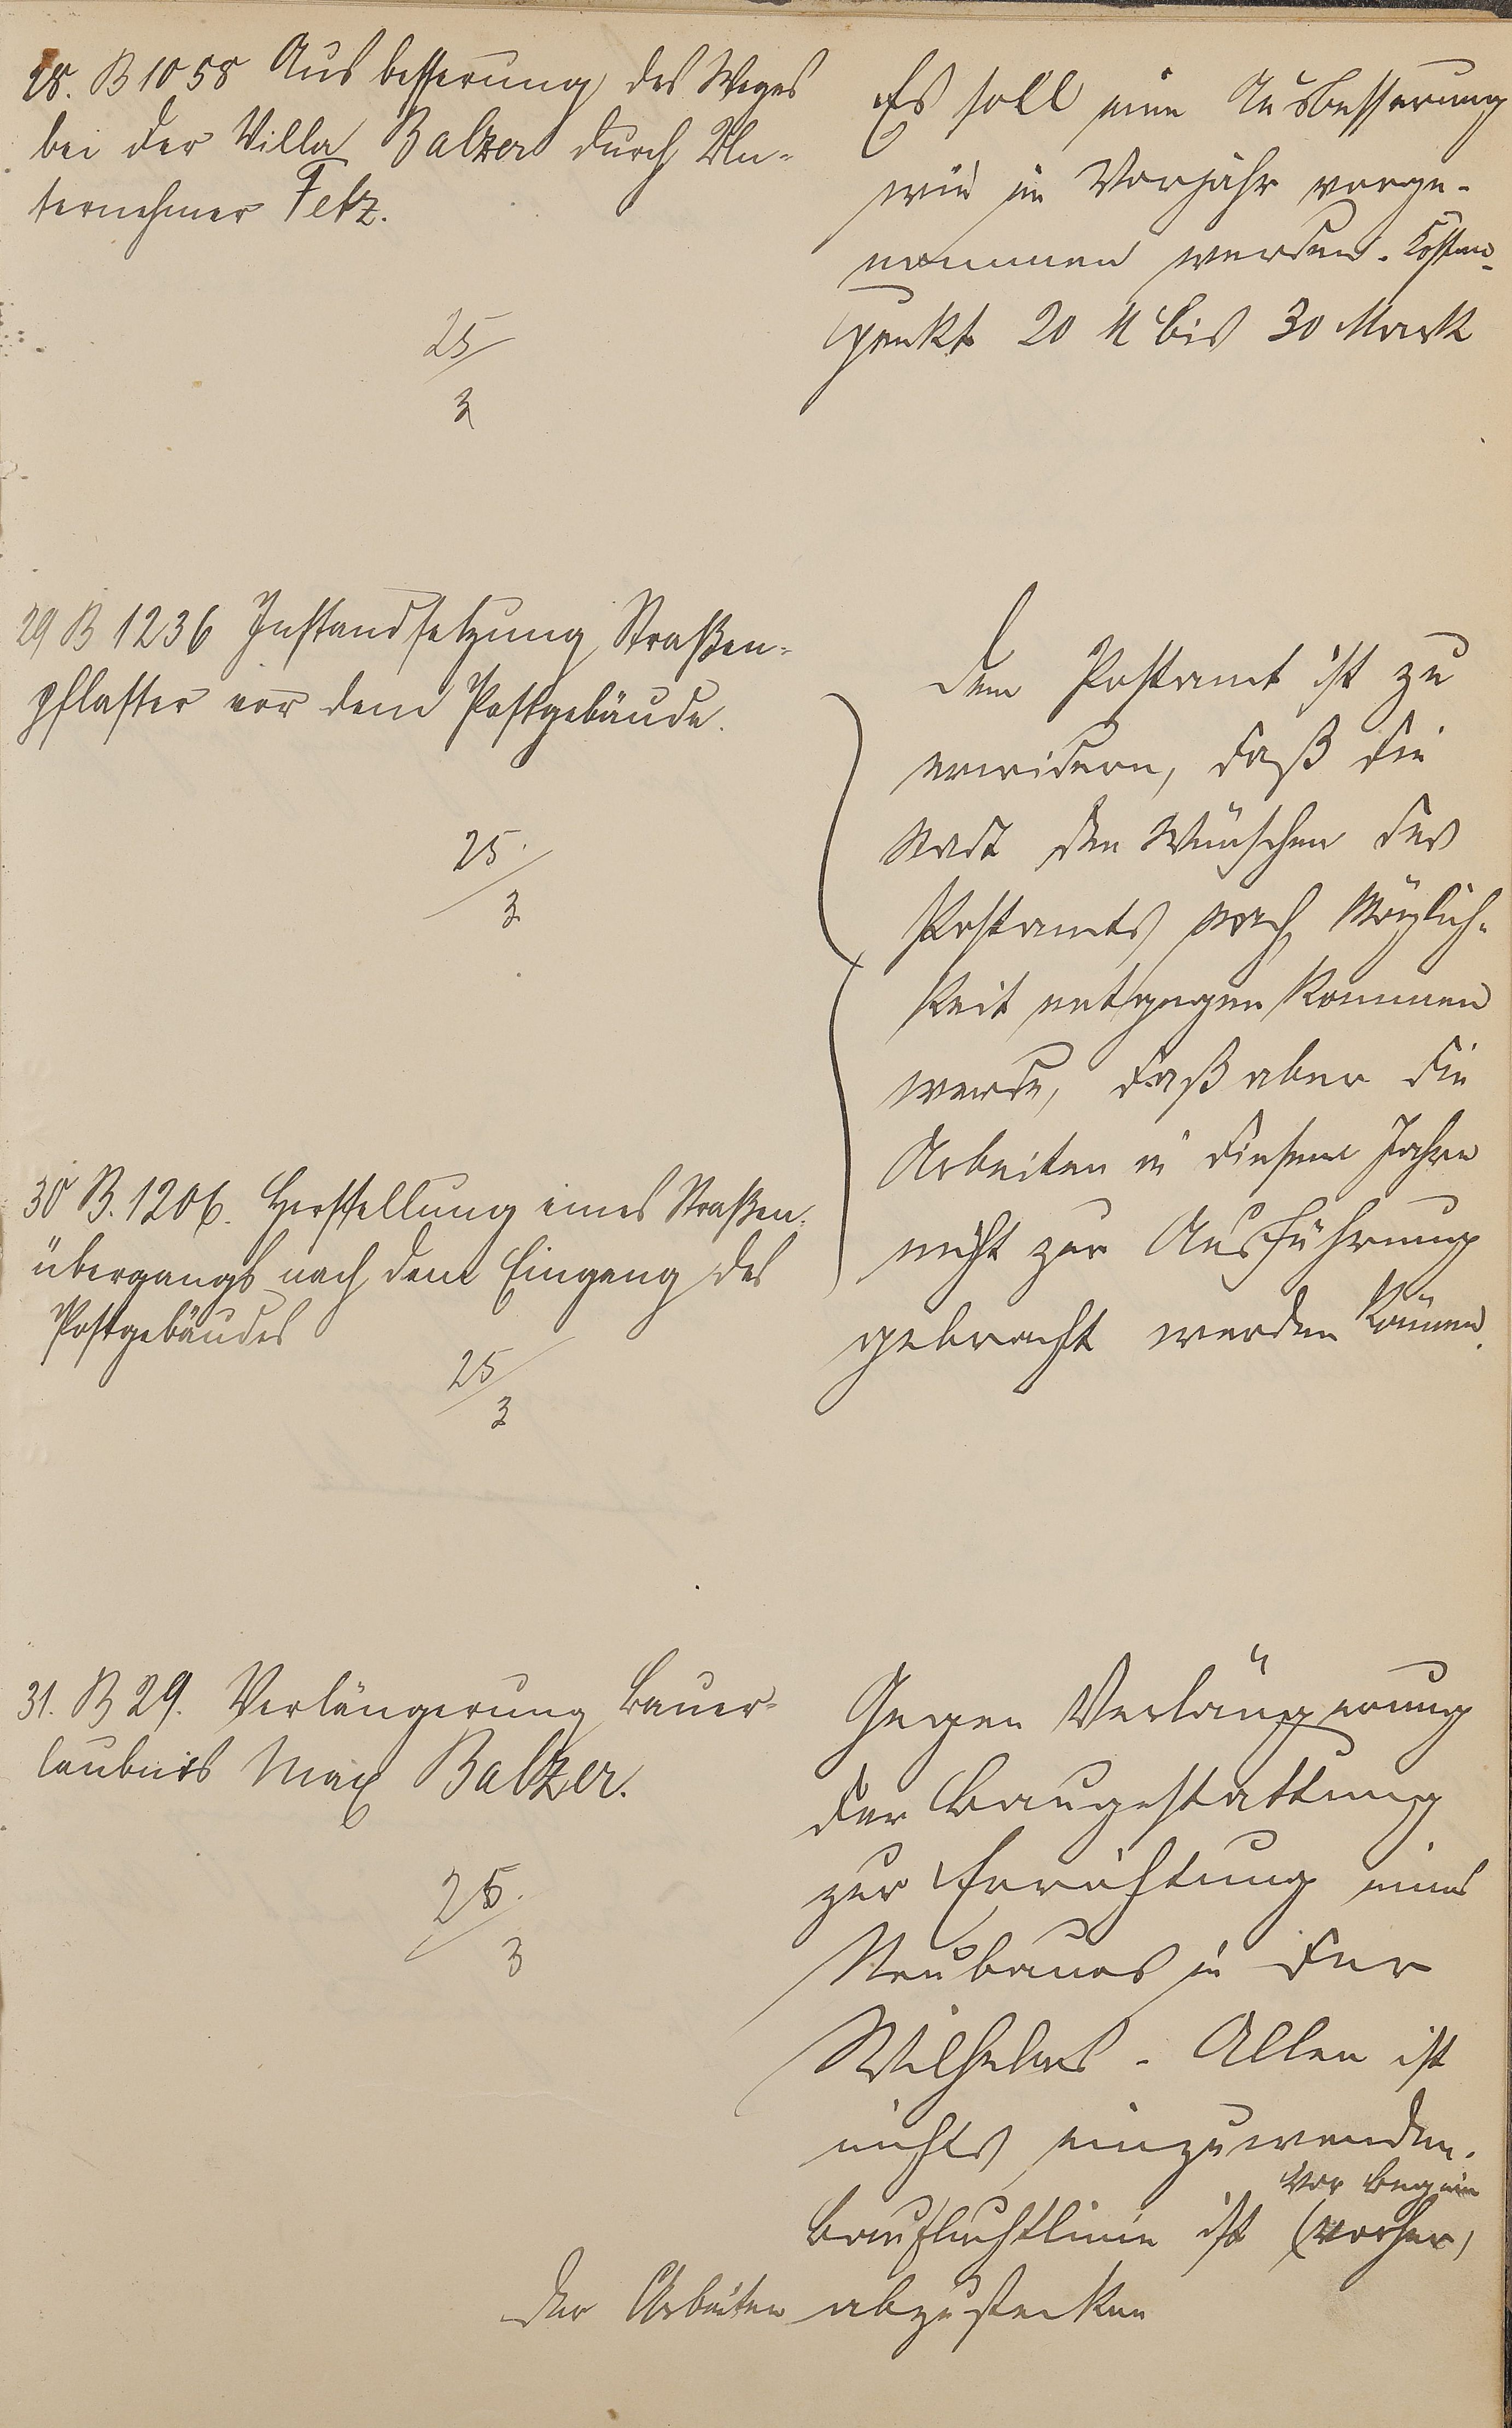 28. B 1058 Ausbesserung des Weges
bei der Villa Balzer durch Un-
ternehmer Fetz.
25/3
Es soll eine Ausbesserung
wie im Vorjahr vorge-
nommen werden. Kosten-
punkt 20 M bis 30 Mark
29 B 1236 Instandsetzung Straßen-
pflaster vor dem Postgebäude.
25./3
30 B. 1206. Herstellung eines Straßen-
übergangs nach dem Eingang des
Postgebäudes
25/3
Dem Postamt ist zu
erwidern, daß die
Stadt den Wünschen des
Postamts nach Möglich-
keit entgegen kommen
werde, daß aber die
Arbeiten in diesem Jahre
nicht zur Ausführung
gebracht werden können.
31. B 29. Verlängerung Bauer-
laubnis Max Balzer.
25./3
Gegen Verlängerung
der Baugestattung
zur Errichtung eines
Neubaues in der
Wilhelms-Allee ist
nichts einzuwenden.
vor Beginn
Baufluchtlinie ist (vorher)
der Arbeiten abzustecken